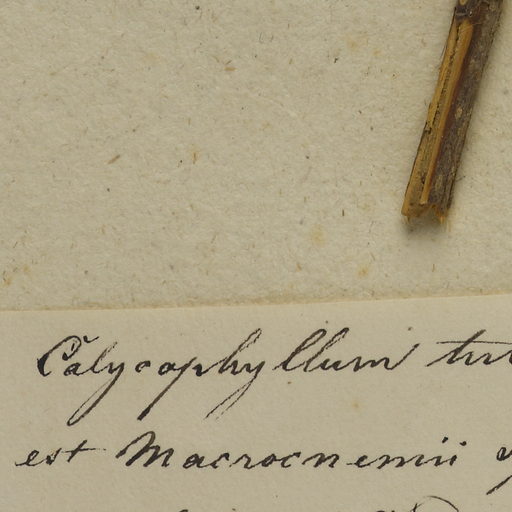 Calycophyllum
est Macrocnemii